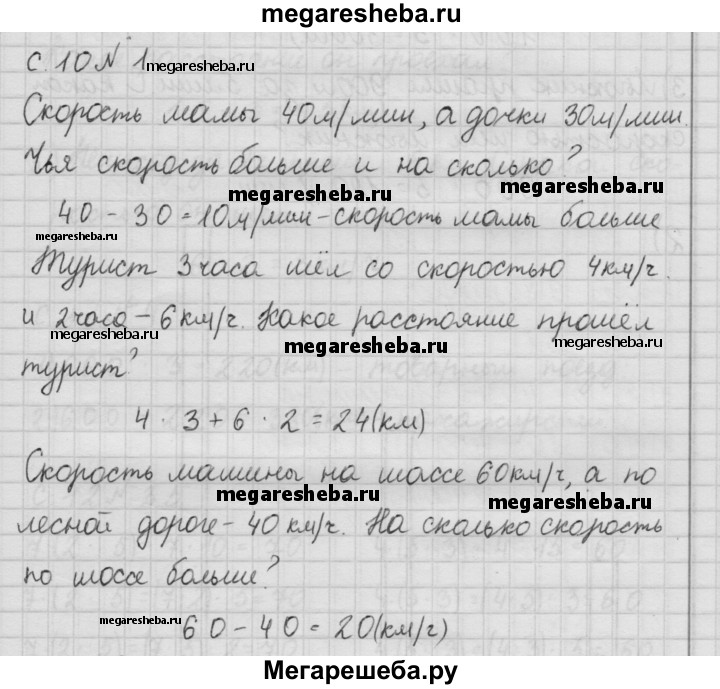 megaresheba.ru
с. 10 № 1
megaresheba.ru
Скорость мамы 40м/мин, а дочки 30м/мин.
Чья скорость больше и на сколько?
megaresheba.ru
megaresheba.ru
40 - 30 = 10м/мин - скорость мамы больше
megaresheba.ru
Турист 3 часа шёл со скоростью 4км/ч.
и 2 часа - 6км/ч. Какое расстояние прошёл
megaresheba.ru
megaresheba.ru
megaresheba.ru
турист?
4 · 3 + 6 · 2 = 24(км)
Скорость машины на шассе 60км/ч, а по
megaresheba.ru
megaresheba.ru
лесной дороге - 40 км/ч. На сколько скорость
по шоссе больше?
megaresheba.ru
60 - 40 = 20(км/ч)
Мегарешеба.ру